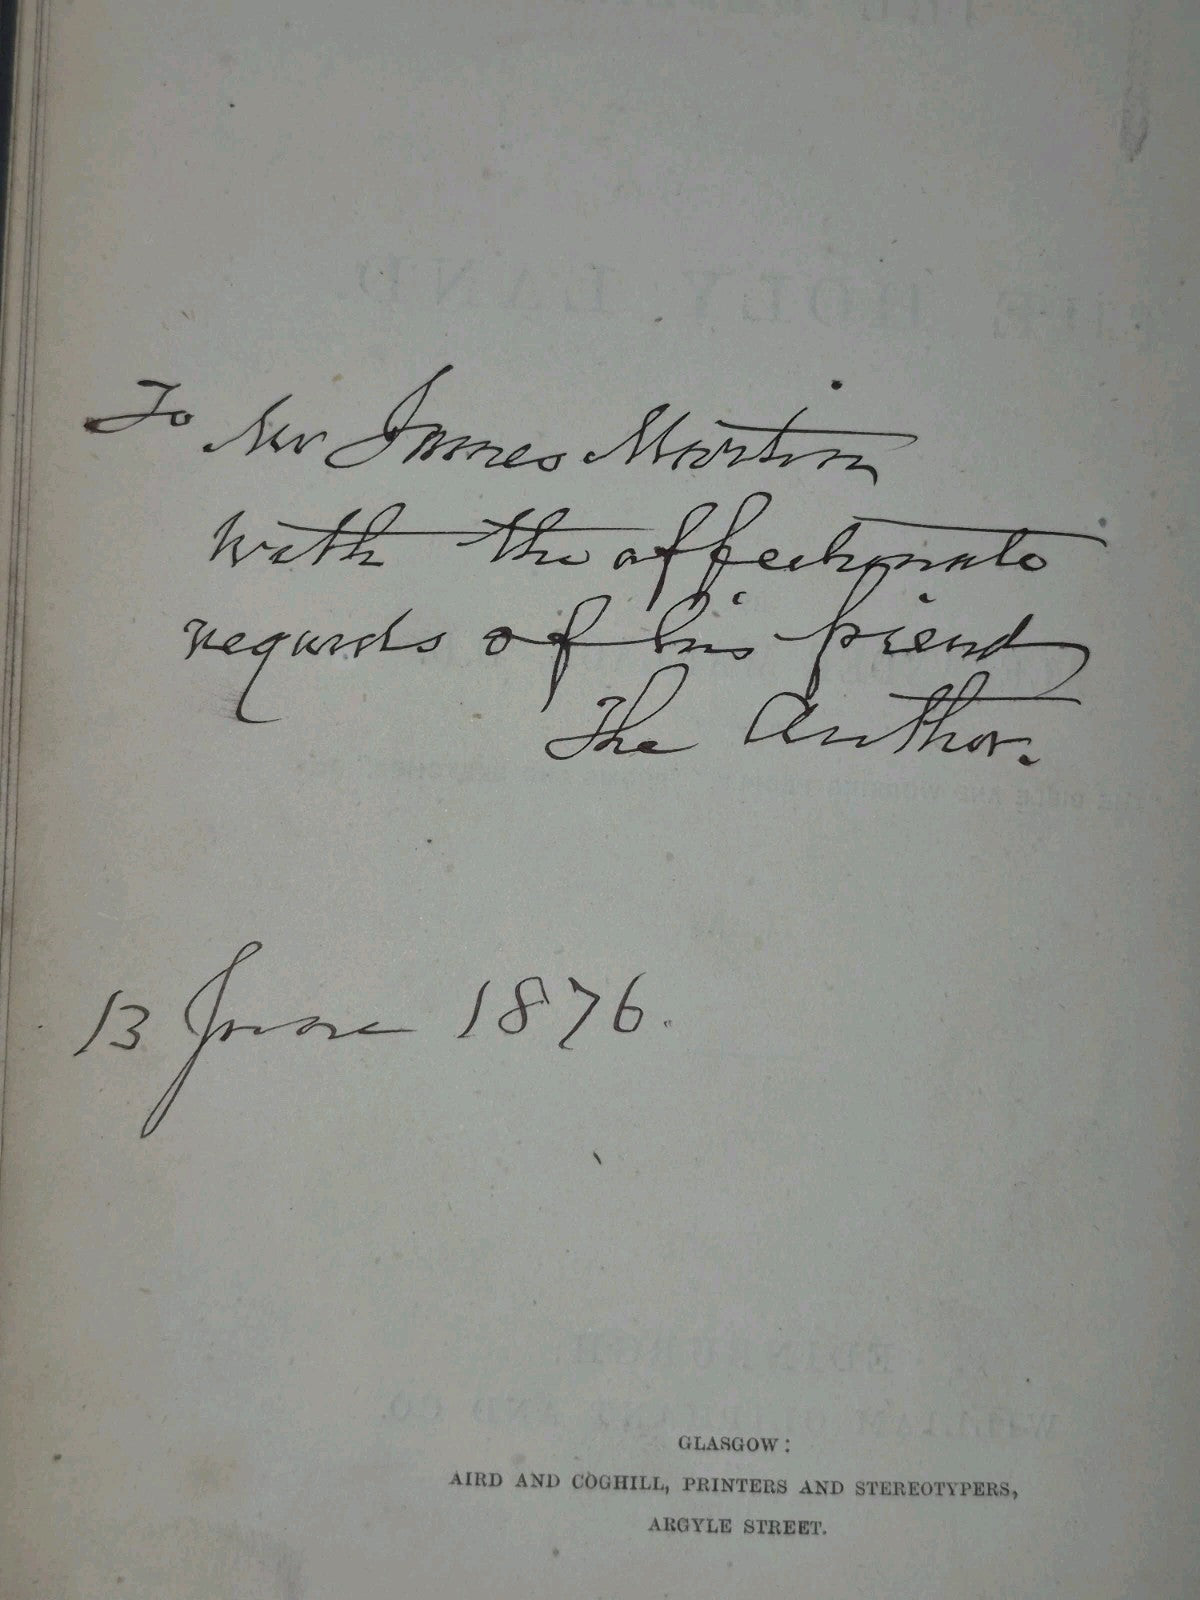 To Mr James Martin
with the affectionate
regards of his friend
The Author.
13 June 1876.
GLASGOW:
AIRD AND COGHILL, PRINTERS AND STEREOTYPERS,
ARGYLE STREET.